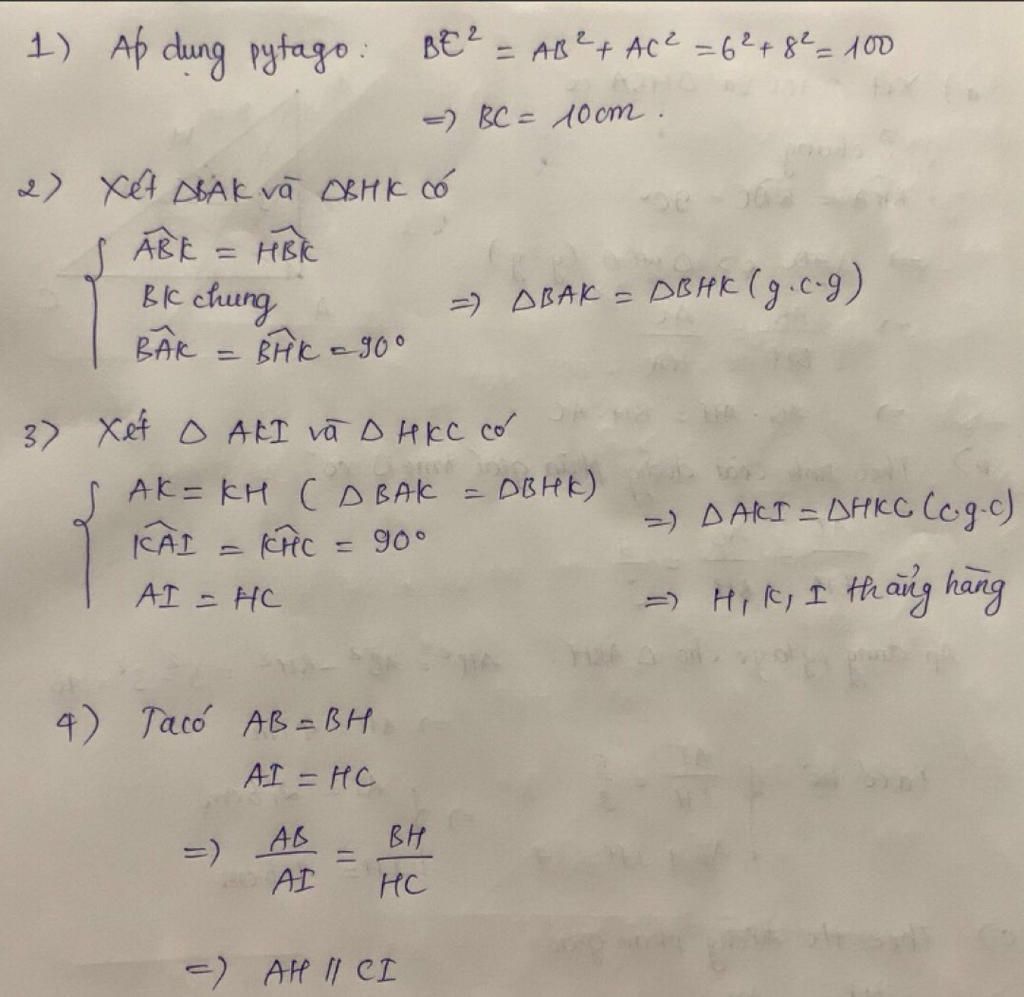 1) Áp dụng pytago: BC² = AB² + AC² = 6² + 8² = 100
=> BC = 10cm.
2) Xét ΔBAK và ΔBHK có
{ ABK̂ = HBK̂
BK chung => ΔBAK = ΔBHK (g.c.g)
BAK̂ = BHK̂ = 90°
3) Xét Δ AKI và Δ HKC có
{ AK = KH ( ΔBAK = ΔBHK)
KAÎ = KHĈ = 90° => ΔAKI = ΔHKC (c.g.c)
AI = HC => H, K, I thẳng hàng
4) Ta có AB = BH
AI = HC
=> AB/AI = BH/HC
=> AH // CI